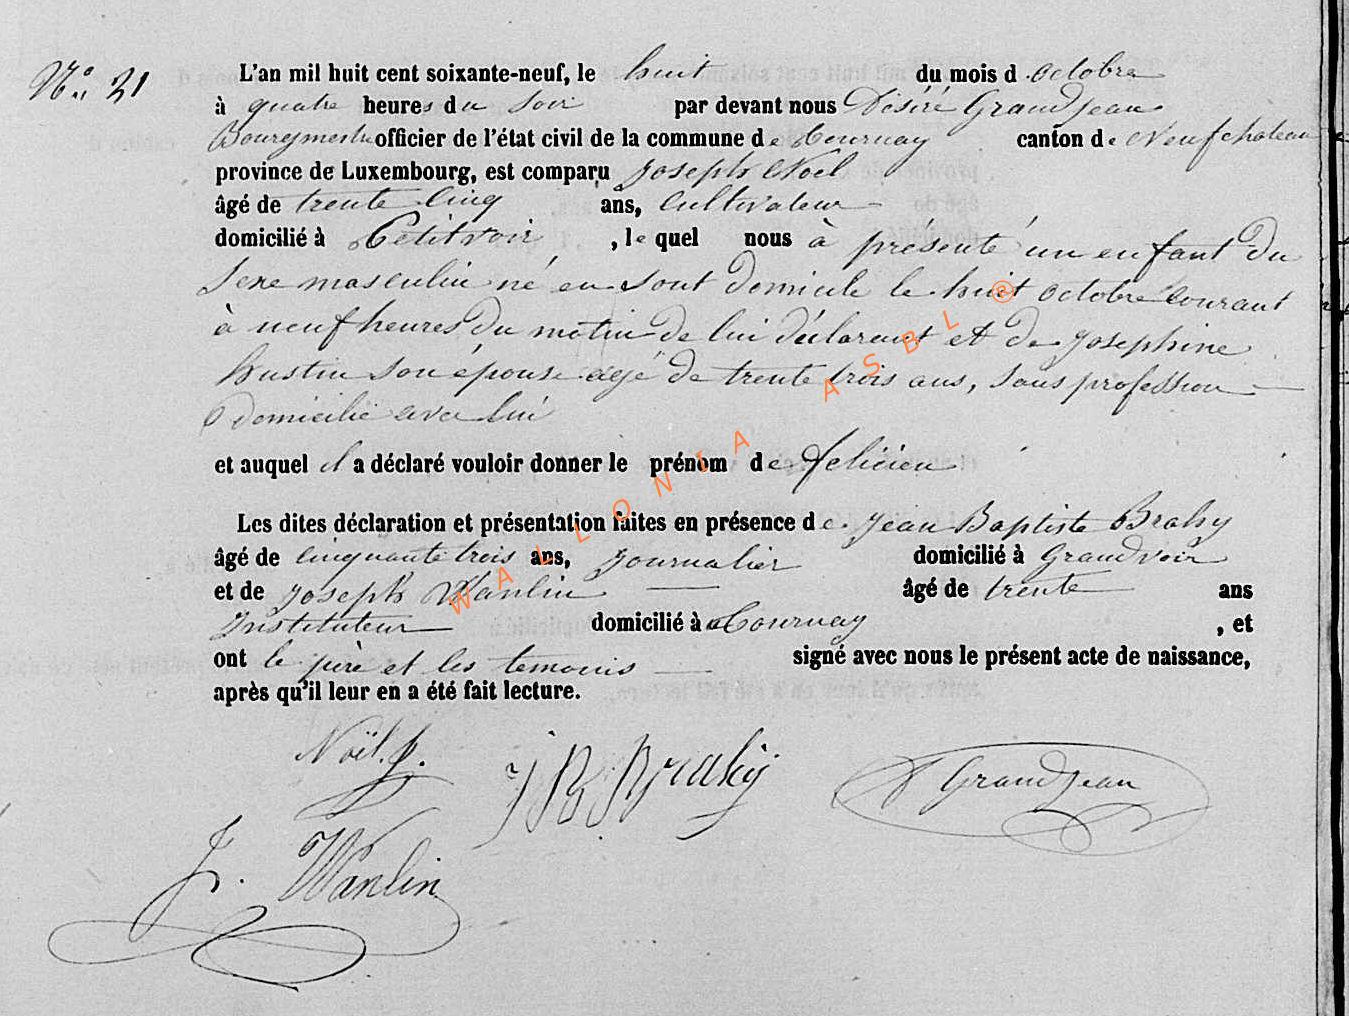 N° 21
L'an mil huit cent soixante-neuf, le huit du mois d'octobre
à quatre heures du soir par devant nous Désiré Grandjean
Bourgmestre officier de l'état civil de la commune de Tournay canton de Neufchateau
province de Luxembourg, est comparu Joseph Noël
âgé de trente cinq ans, cultivateur
domicilié à Petitvoir, lequel nous à présenté un enfant du
sexe masculin né en sont domicile le huit octobre courant
à neuf heures du matin de lui déclarant et de Josephine
hustin son épouse agé de trente trois ans, sans profession
Domicilié avec lui
et auquel il a déclaré vouloir donner le prénom de félicien
Les dites déclaration et présentation faites en présence de Jean Baptiste Brahy
âgé de cinquante trois ans, Journalier domicilié à Grandvoir
et de Joseph Wanlin âgé de trente ans
Instituteur domicilié à Tournay, et
ont le père et les temoins signé avec nous le présent acte de naissance,
après qu'il leur en a été fait lecture.
Noël. J. JB Brahy D Grandjean
J. Wanlin
WALLONIA ASBL ®